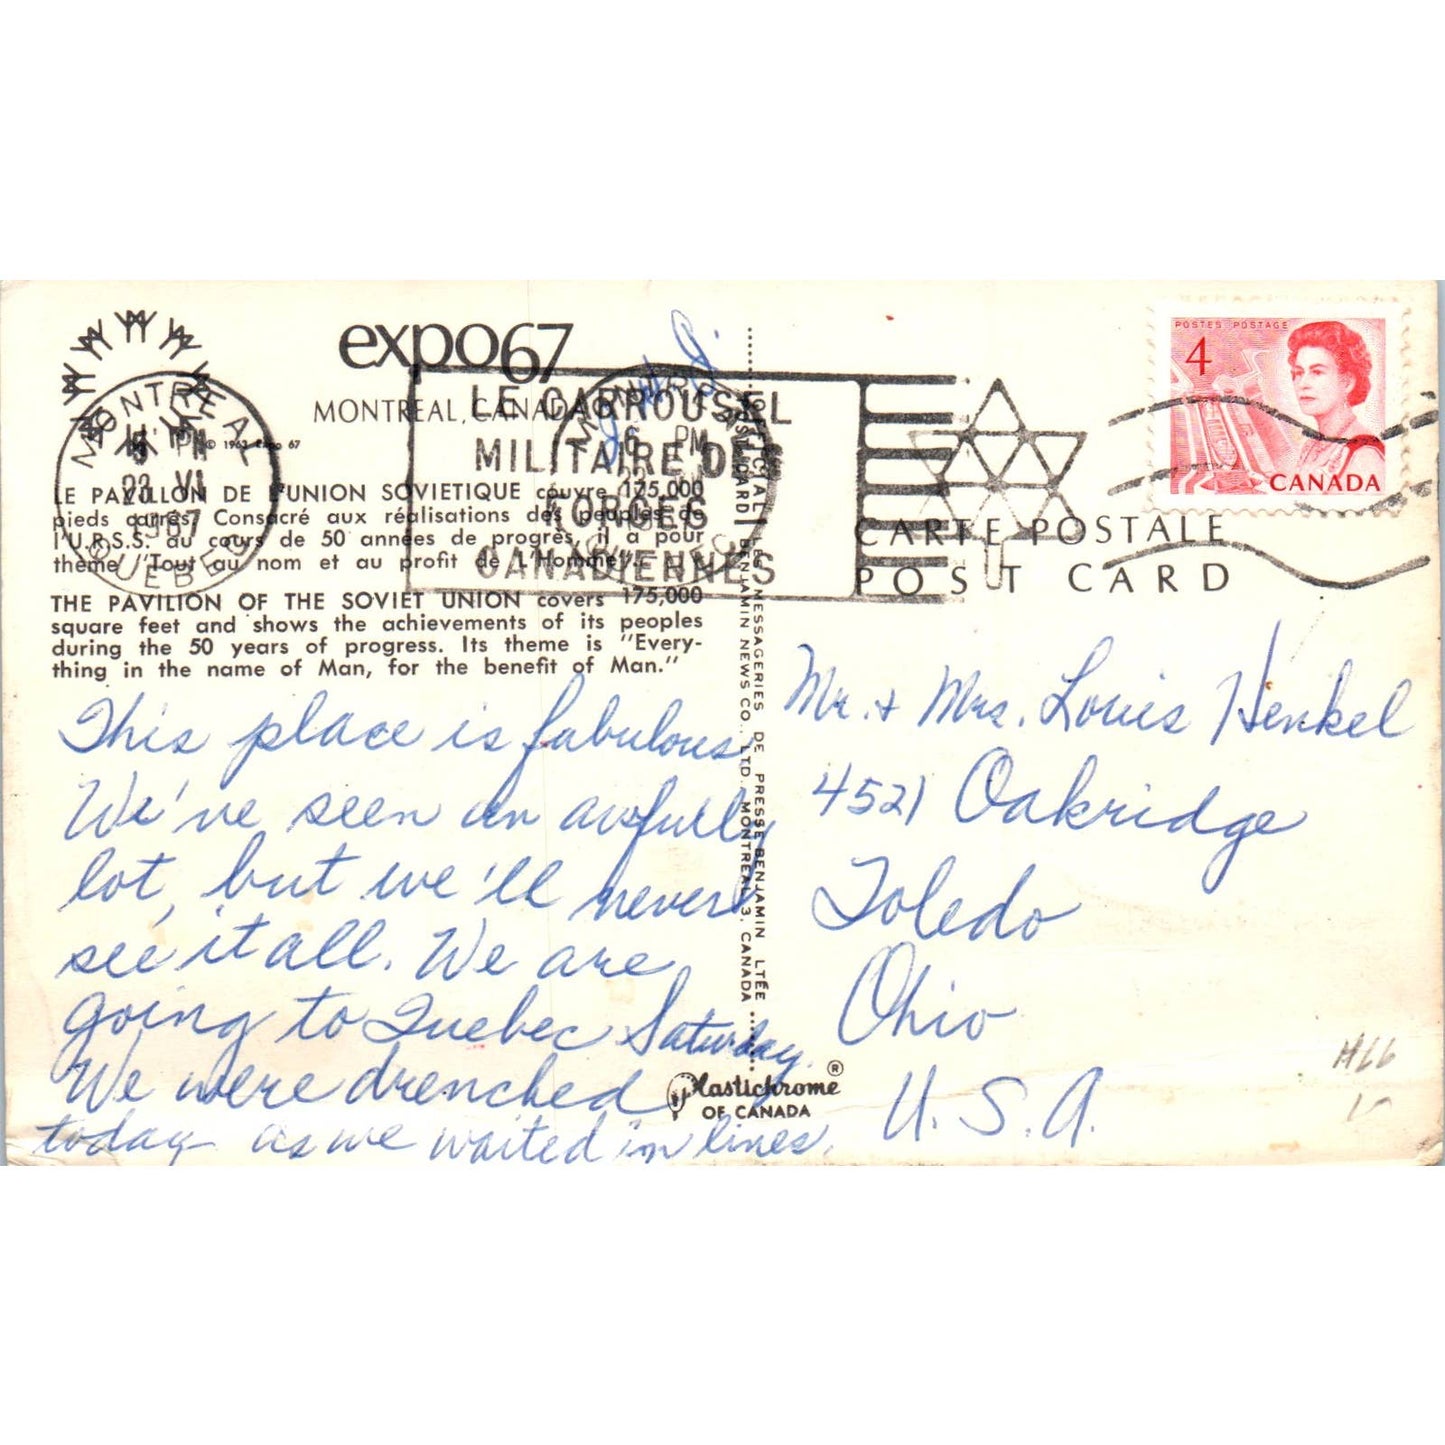 expo67
MONTREAL, CANADA
© 1963 Expo 67
MONTREAL
PM
23 VI
1967
QUEBEC
LE CARROUSEL
MILITAIRE DES
FORCES
CANADIENNES
MONTREAL
6 PM
POSTES POSTAGE
4
CANADA
CARTE POSTALE
POST CARD
LE PAVILLON DE L'UNION SOVIETIQUE couvre 175,000
pieds carrés. Consacré aux réalisations des peuples de
l'U.R.S.S. au cours de 50 années de progrès, il a pour
thème "Tout au nom et au profit de L'Homme".
THE PAVILION OF THE SOVIET UNION covers 175,000
square feet and shows the achievements of its peoples
during the 50 years of progress. Its theme is "Every-
thing in the name of Man, for the benefit of Man."
This place is fabulous.
We've seen an awfully
lot, but we'll never
see it all. We are
going to Quebec Saturday.
We were drenched
today as we waited in lines.
OFFICIAL LES MESSAGERIES DE PRESSE BENJAMIN LTÉE
POST CARD BENJAMIN NEWS CO. LTD. MONTREAL 3, CANADA
Plastichrome ®
OF CANADA
Mr. & Mrs. Louis Henkel
4521 Oakridge
Toledo
Ohio
U. S. A.
H66